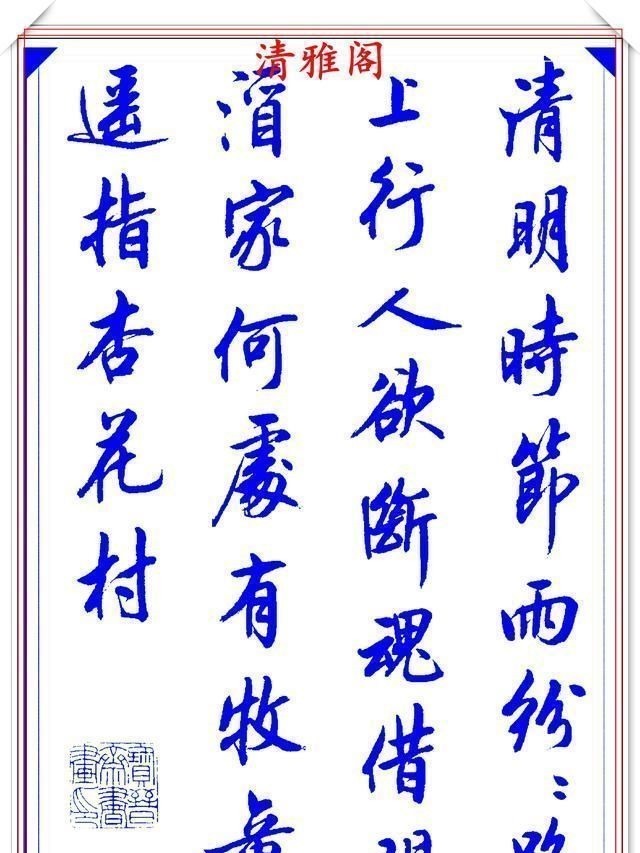 清雅阁
清明時節雨紛〻路
上行人欲斷魂借問
酒家何處有牧童
遥指杏花村
寶晉齋書畫印